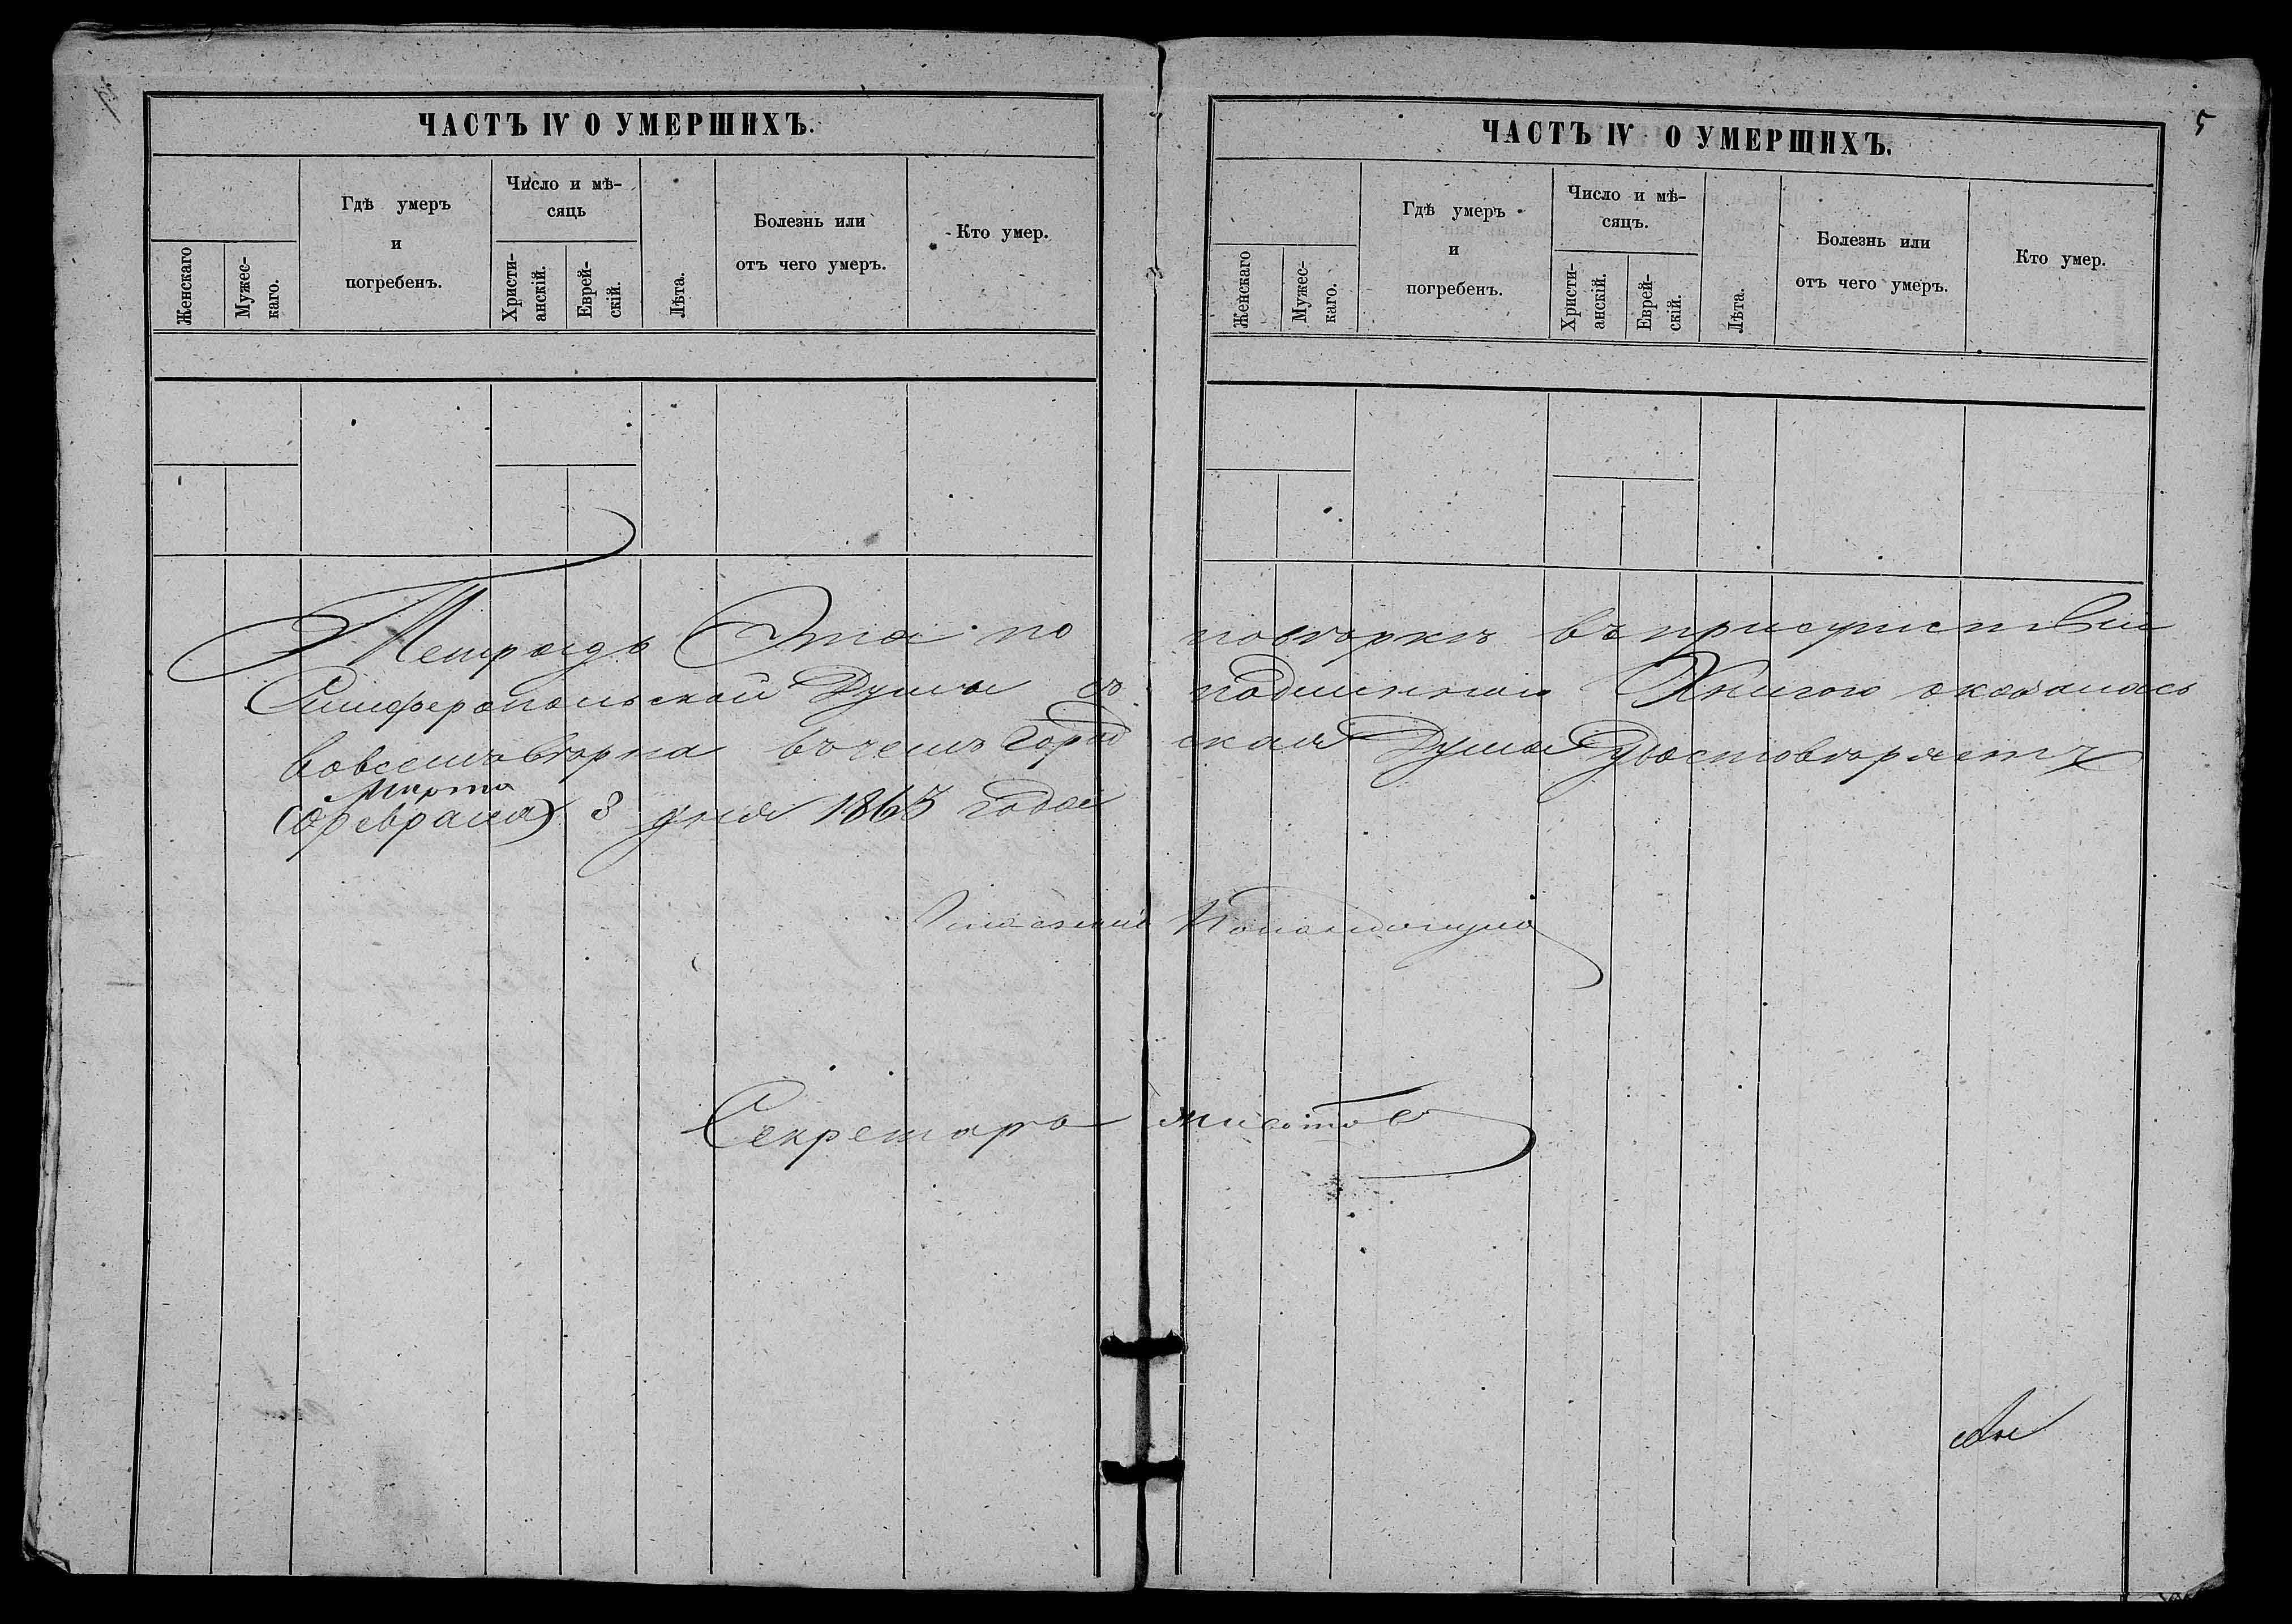 ЧАСТЪ IV О УМЕРШИХЪ.
Женскаго
Мужес-
каго.
Гдѣ умеръ
и
погребенъ.
Число и мѣ-
сяцъ
Христи-
анскій.
Еврей-
скій.
Лѣта.
Болезнь или
отъ чего умеръ.
Кто умер.
ЧАСТЪ IV О УМЕРШИХЪ.
5
Женскаго
Мужес-
каго.
Гдѣ умеръ
и
погребенъ.
Число и мѣ-
сяцъ.
Христи-
анскій.
Еврей-
скій.
Лѣта.
Болезнь или
отъ чего умеръ.
Кто умер.
Тетрадь Эта по повѣркѣ въ присутствіи
Симферопольской Думы съ подлинною Книгою оказалась
во всемъ вѣрна въ чемъ Городская Дума Удостовѣряетъ
Марта
(февраля) 8 дня 1863 года
Гласный
Секретарь